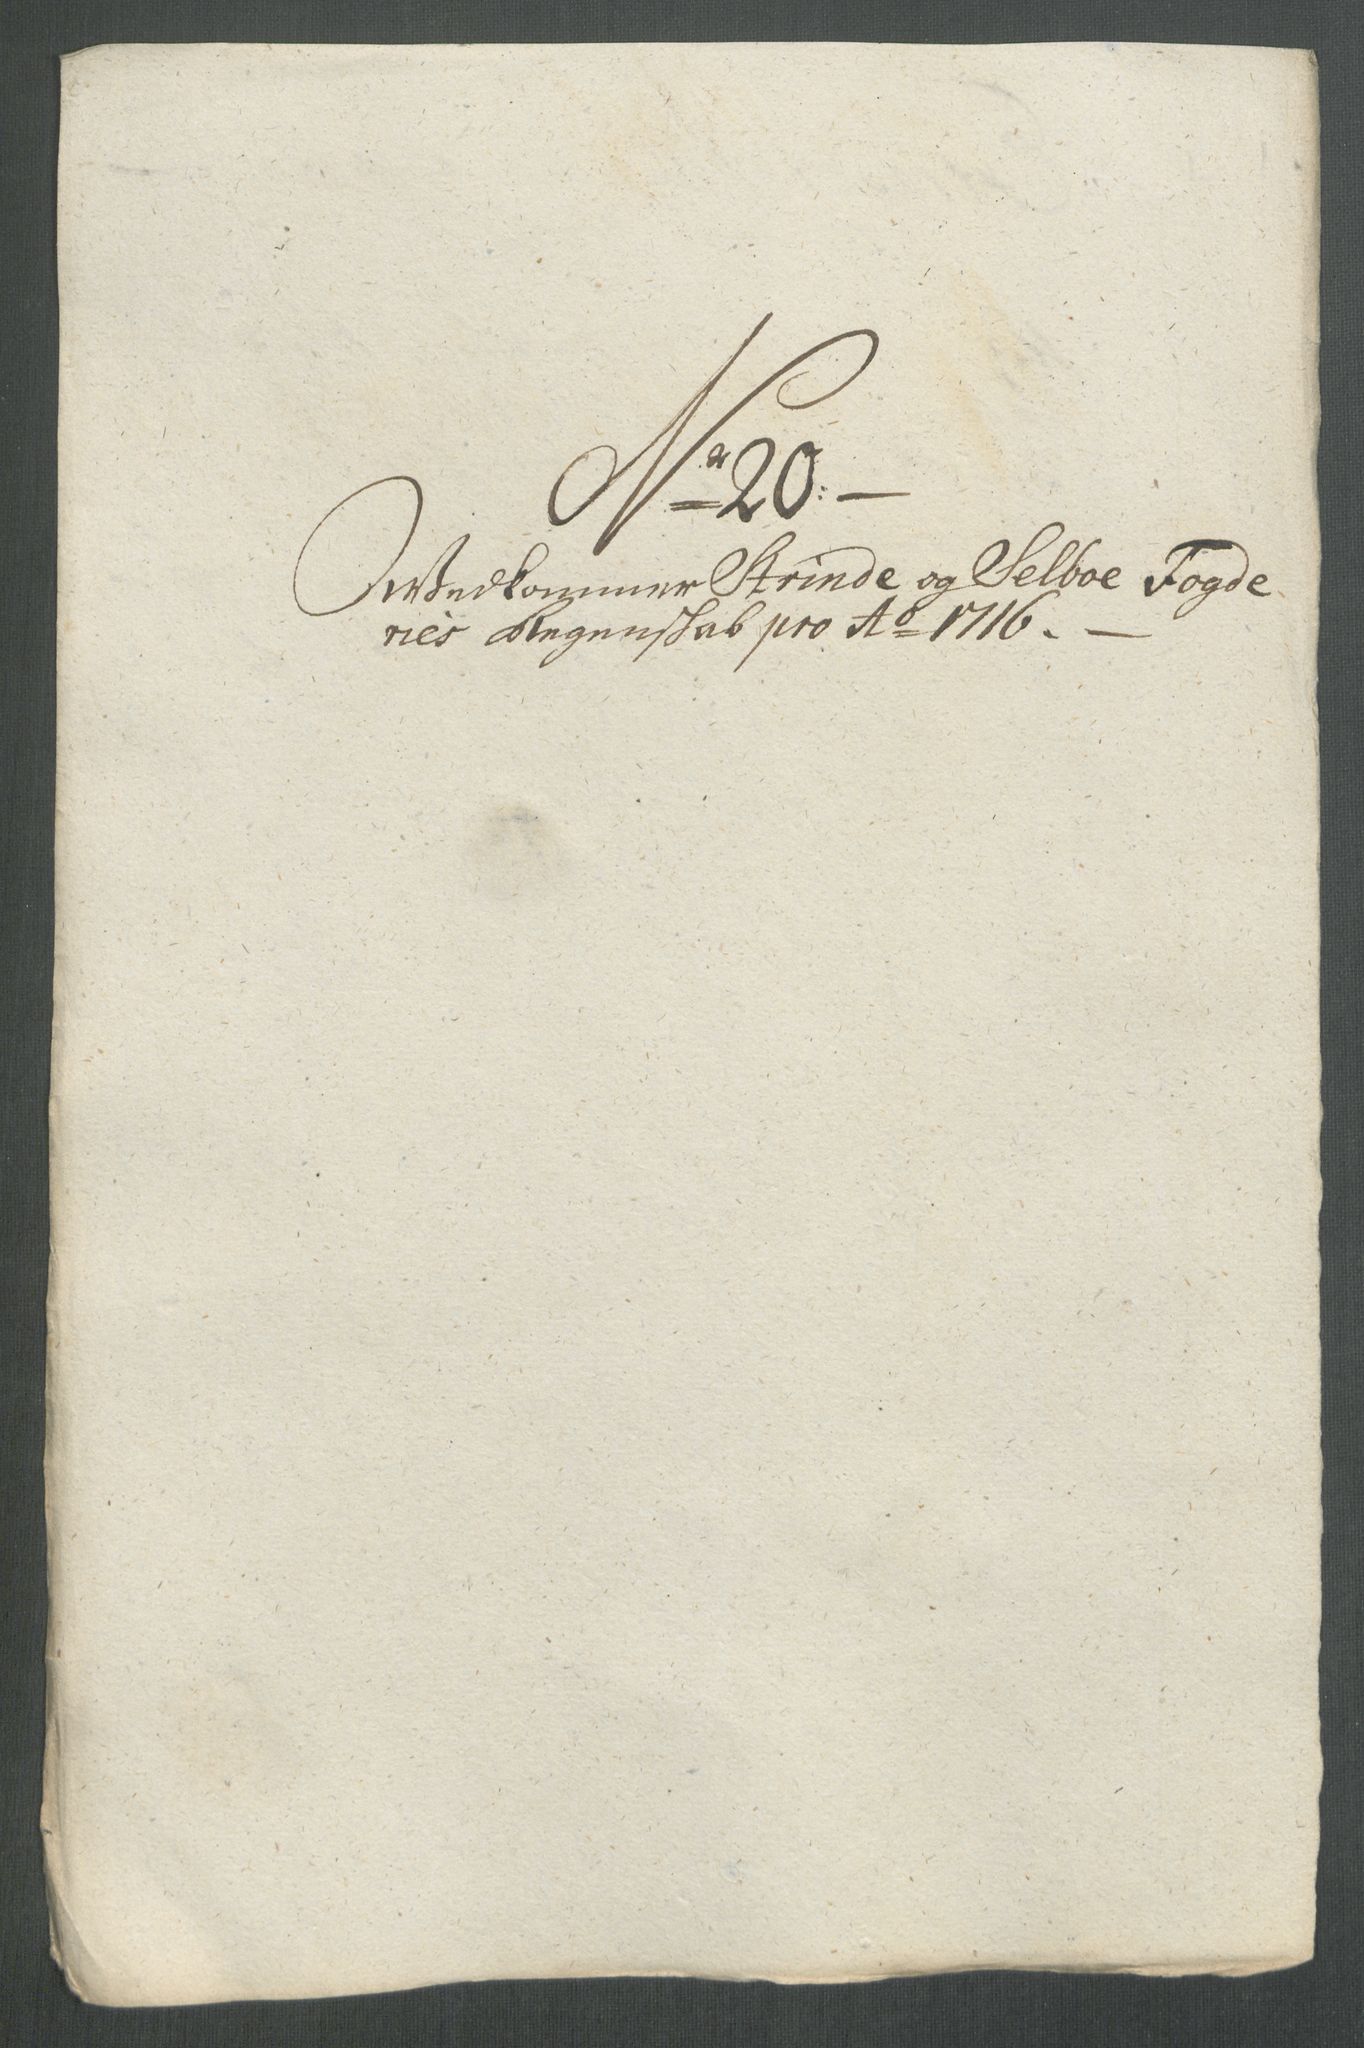 No 20. —
Wedkommer Strinde og Selboe Fogde
ries Regenskab pro Ao 1716. —